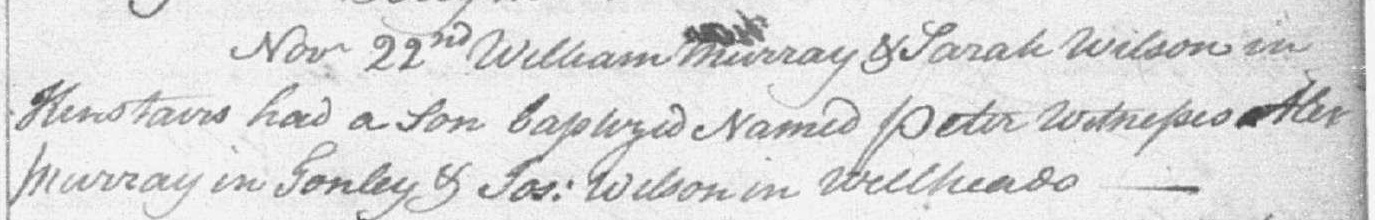 Nov 22nd William Murray & Sarah Wilson in
Kinstairs had a Son baptyzed Named Peter Witnesses Alex
Murray in Gonley & Jos: Wilson in Wellheads